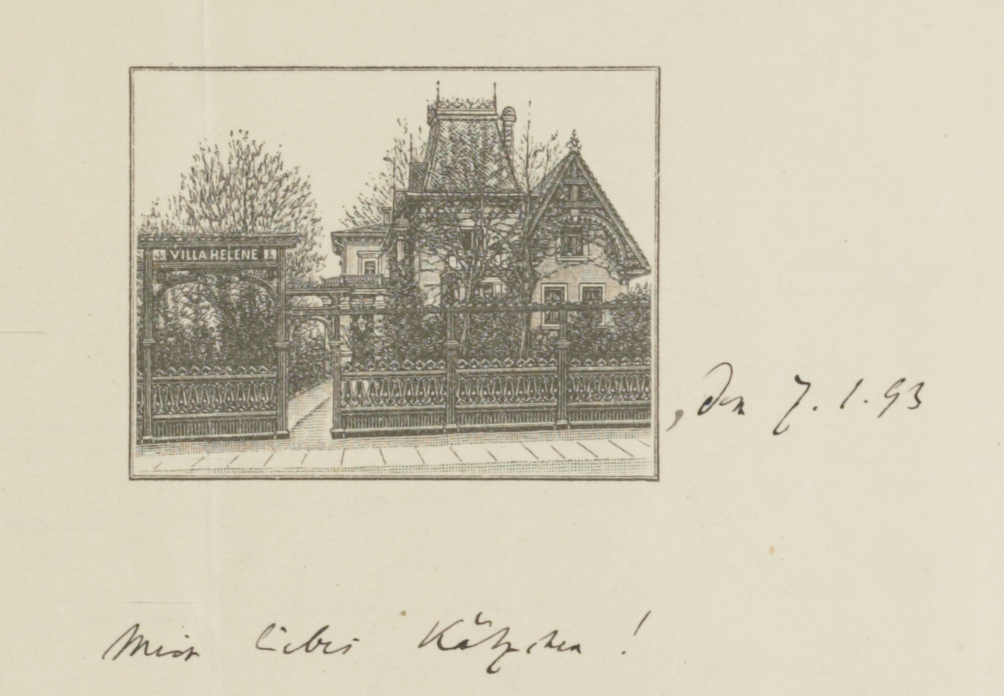 VILLA HELENE
, den 7. 1. 93
Mein liebes Kätzchen!